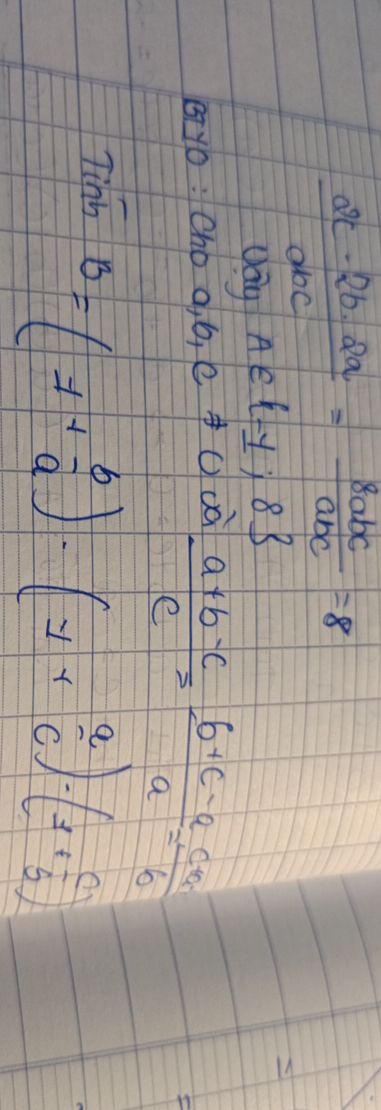 2c · 2b · 2a / abc = 8abc / abc = 8
Vậy A ∈ {-1; 8}
BT10 : Cho a, b, c ≠ 0 và a+b-c / c = b+c-a / a = / b
Tính B = (1 + b/a) · (1 + a/c) · (1 + c/b)